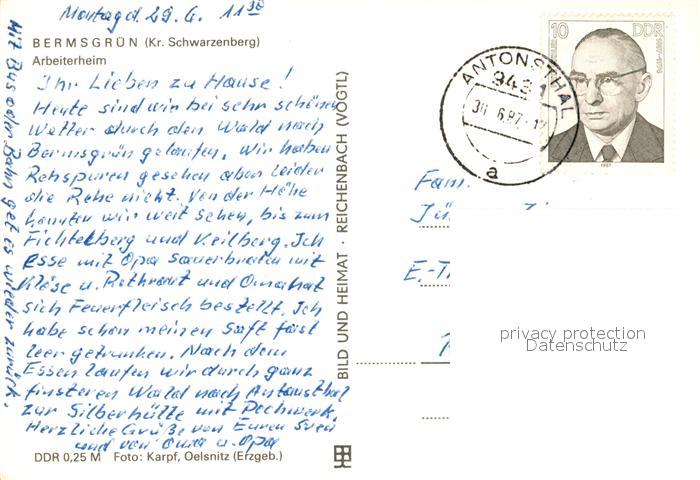 Montag d. 29.6. 11 30
BERMSGRÜN (Kr. Schwarzenberg)
Arbeiterheim
Ihr Lieben zu Hause!
Heute sind wir bei sehr schönem
Wetter durch den Wald nach
Bermsgrün gelaufen. Wir haben
Rehspuren gesehen aber leider
die Rehe nicht. Von der Höhe
konnten wir weit sehen, bis zum
Fichtelberg und Keilberg. Ich
esse mit Opa Sauerbraten mit
Klöse u. Rotkraut und Oma hat
sich Feuerfleisch bestellt. Ich
habe schon meinen Saft fast
leer getrunken. Nach dem
Essen laufen wir durch ganz
finsteren Wald nach Antonsthal
zur Silberhütte mit Pochwerk.
Herzliche Grüße von Euren Sven
und von Oma u. Opa
Mit Bus oder Bahn get es wieder zurück.
DDR 0,25 M Foto: Karpf, Oelsnitz (Erzgeb.)
BILD UND HEIMAT · REICHENBACH (VOGTL)
ANTONSTHAL
9431
30.6.87
a
10 DDR
1987
Fam.
E.-
privacy protection
Datenschutz